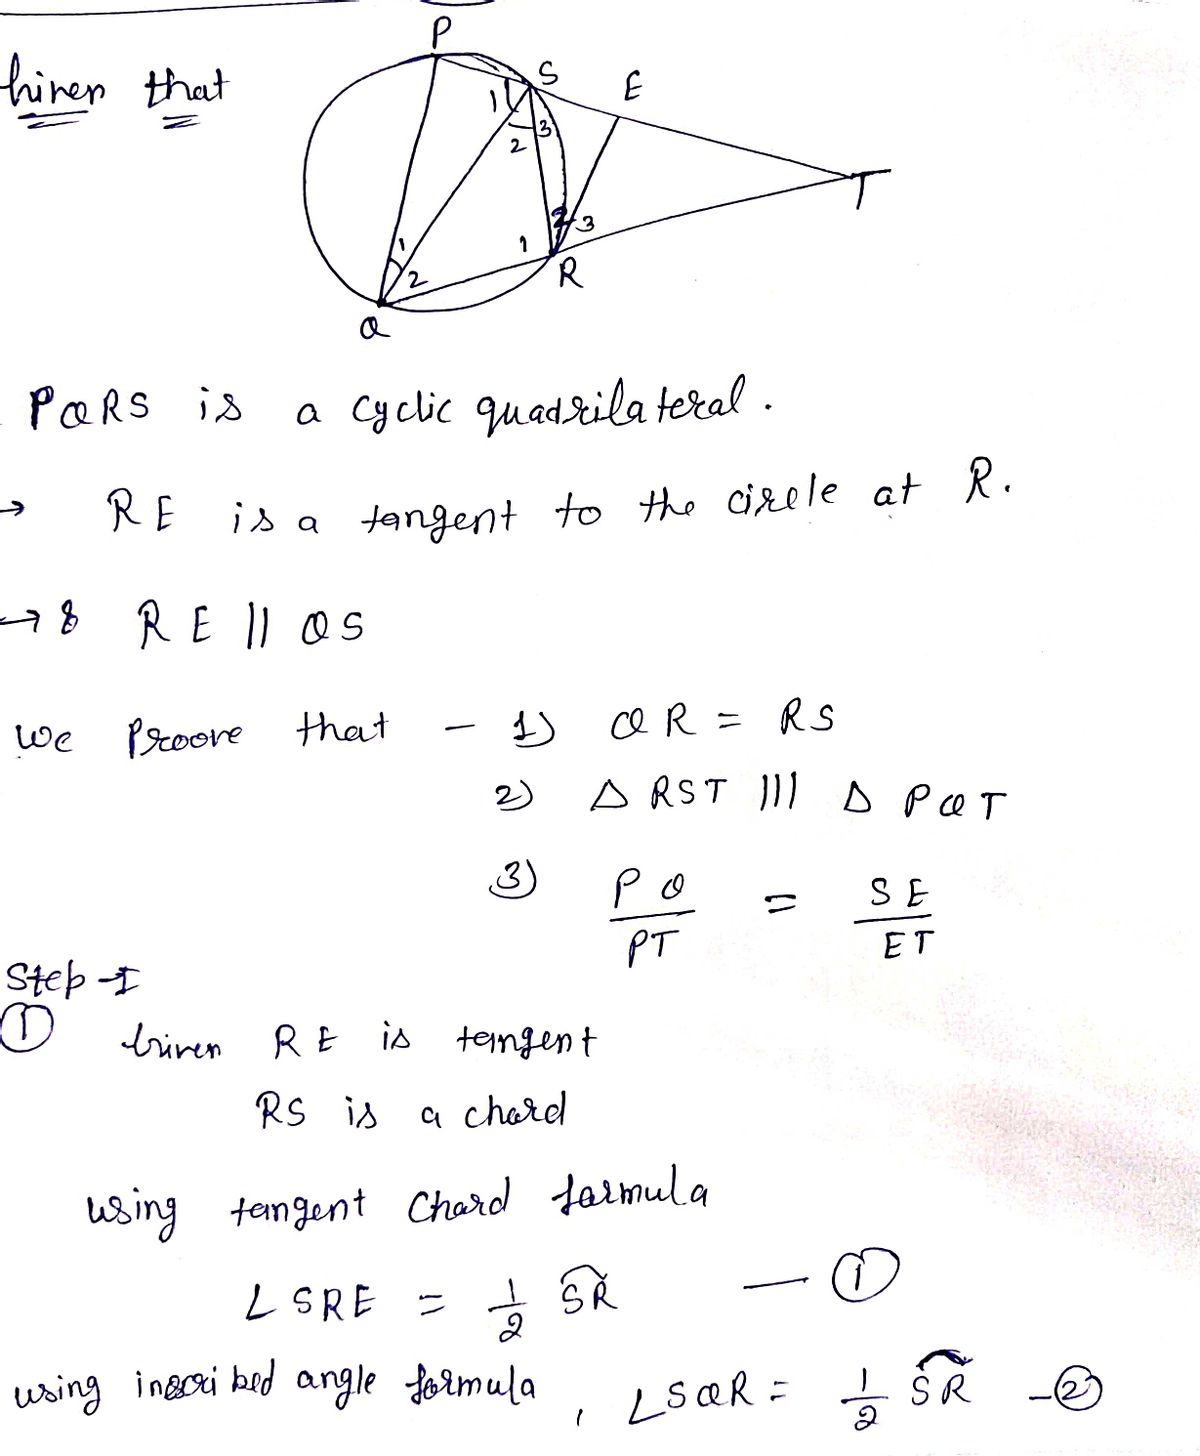 Given that
P
S
E
T
1
2
3
2
3
1
1
2
R
Q
PQRS is a cyclic quadrilateral.
→ RE is a tangent to the circle at R.
→ 8 RE || QS
We Proove that - 1) QR = RS
2) Δ RST ||| Δ PQT
3) PQ/PT = SE/ET
Step-I
① Given RE is tangent
RS is a chord
using tangent Chord formula
∠SRE = 1/2 S͡R — ①
using inscribed angle formula, ∠SQR = 1/2 S͡R -②